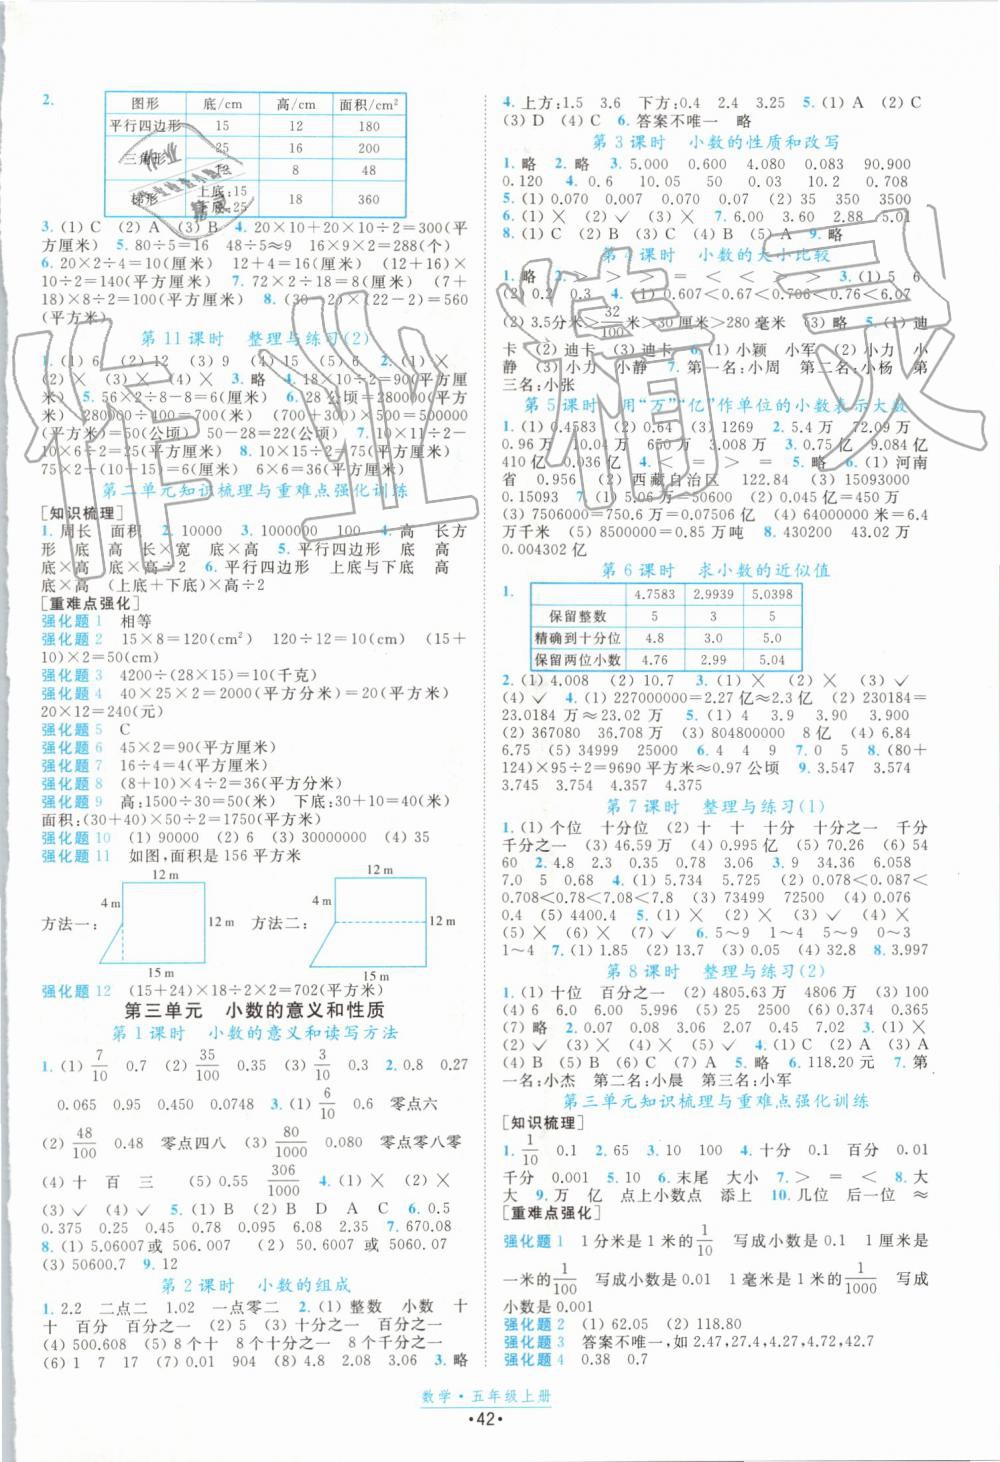 2.
图形 底/cm 高/cm 面积/cm²
平行四边形 15 12 180
三角形 25 16 200
12 8 48
梯形 上底:15 下底:25 18 360
3. (1) C (2) A (3) B 4. 20×10+20×10÷2=300(平
方厘米) 5. 80÷5=16 48÷5≈9 16×9×2=288(个)
6. 20×2÷4=10(厘米) 12+4=16(厘米) (12+16)×
10÷2=140(平方厘米) 7. 72×2÷18=8(厘米) (7+
18)×8÷2=100(平方厘米) 8. (30-2)×(22-2)=560
(平方厘米)
第 11 课时 整理与练习(2)
1. (1) 6 (2) 12 (3) 9 (4) 15 (5) 6 2. (1) ×
(2) × (3) × 3. 略 4. 18×10÷2=90(平方厘
米) 5. 56×2÷8-8=6(厘米) 6. 28 公顷=280000(平
方米) 280000÷400=700(米) (700+300)×500=500000
(平方米)=50(公顷) 50-28=22(公顷) 7. 10×11÷2-
6×10÷2=25(平方厘米) 8. 10×15÷2=75(平方厘米)
75×2÷(10+15)=6(厘米) 6×6=36(平方厘米)
第二单元知识梳理与重难点强化训练
[知识梳理]
1. 周长 面积 2. 10000 3. 1000000 100 4. 高 长方
形 底 高 长×宽 底×高 5. 平行四边形 底 高 底
底×高 底×高÷2 6. 平行四边形 上底与下底 高
底×高 (上底+下底)×高÷2
[重难点强化]
强化题 1 相等
强化题 2 15×8=120(cm²) 120÷10=12(cm) (15+
10)×2=50(cm)
强化题 3 4200÷(28×15)=10(千克)
强化题 4 40×25×2=2000(平方分米)=20(平方米)
20×12=240(元)
强化题 5 C
强化题 6 45×2=90(平方厘米)
强化题 7 16÷4=4(平方厘米)
强化题 8 (8+10)×4÷2=36(平方分米)
强化题 9 高:1500÷30=50(米) 下底:30+10=40(米)
面积:(30+40)×50÷2=1750(平方米)
强化题 10 (1) 90000 (2) 6 (3) 30000000 (4) 35
强化题 11 如图,面积是 156 平方米
12 m 12 m
4 m 4 m
方法一: 12 m 方法二: 12 m
15 m 15 m
强化题 12 (15+24)×18÷2×2=702(平方米)
第三单元 小数的意义和性质
第 1 课时 小数的意义和读写方法
1. (1) 7/10 0.7 (2) 35/100 0.35 (3) 3/10 0.3 2. 0.8 0.27
0.065 0.95 0.450 0.0748 3. (1) 6/10 0.6 零点六
(2) 48/100 0.48 零点四八 (3) 80/1000 0.080 零点零八零
(4) 十 百 三 (5) 0.55 306/1000 4. (1) × (2) ×
(3) ✓ (4) ✓ 5. (1) B (2) B D A C 6. 0.5
0.375 0.25 0.45 0.78 0.095 6.08 2.35 7. 670.08
8. (1) 5.06007或 506.007 (2) 50.6007或 5060.07
(3) 50600.7 9. 12
第 2 课时 小数的组成
1. 2.2 二点二 1.02 一点零二 2. (1) 整数 小数 十
十 百分 百分之一 (2) 5 (3) 十分之一 百分之一
(4) 500.608 (5) 8 个十 8 个十分之一 8 个千分之一
(6) 1 7 17 (7) 0.01 904 (8) 10 100 3. 略
4. 上方:1.5 3.6 下方:0.4 2.4 3.25 5. (1) A (2) C
(3) D (4) C 6. 答案不唯一 略
第 3 课时 小数的性质和改写
1. 略 2. 略 3. 5.000 0.600 4.080 0.083 90.900
0.120 4. 0.6 10.05 50 0.03 10.2 0.708
5. (1) 0.070 0.007 0.020 (2) 35 350 3500
6. (1) × (2) ✓ (3) × 7. 6.00 3.60 2.88 5.01
8. (1) C (2) B (3) C (4) B (5) A 9. 略
第 4 课时 小数的大小比较
1. 略 2. > > > = < < > > 3. (1) 5 6
(2) 0.2 0.3 4. (1) 0.607<0.67<0.706<0.76<6.07
(2) 3.5分米>32/100米>30厘米>280毫米 (3) 略 5. (1) 迪
卡 (2) 迪卡 (3) 迪卡 6. (1) 小颖 小军 (2) 小力 小
静 (3) 小力 小静 7. 第一名:小周 第二名:小杨 第
三名:小张
第 5 课时 用“万”“亿”作单位的小数表示大数
1. (1) 0.4583 (2) 0.64 (3) 1269 2. 5.4 万 72.09 万
0.96 万 10.04 万 650 万 5.2 万 3. 0.75 亿 9.08 亿
410 亿 0.036 亿 4. < < > = 5. 略 6. (1) 河南
省 0.956 (2) 西藏自治区 122.84 (3) 15093000
0.15093 7. (1) 5.06 万=50600 (2) 64000000 米=6.4
(3) 7506000=750.6 万=0.07506 亿 (4) 64000000 米=6.4
万千米 (5) 8500000=0.85 万吨 8. 430200 43.02 万
0.004302 亿
第 6 课时 求小数的近似值
1.
4.7583 2.9939 5.0398
保留整数 5 3 5
精确到十分位 4.8 3.0 5.0
保留两位小数 4.76 2.99 5.04
2. (1) 4.008 (2) 10.7 3. (1) × (2) × (3) ✓
(4) ✓ 4. (1) 227000000=2.27 亿≈2.3 亿 (2) 230184=
23.0184 万≈23.02 万 5. (1) 4 3.9 3.90 3.900
(2) 367080 36.708 万 (3) 804800000 8亿 (4) 6.84
6.75 (5) 34999 25000 6. 4 4 9 7. 0 5 8. (80+
124)×95÷2=9690 平方米≈0.97 公顷 9. 3.547 3.574
3.745 3.754 4.357 4.375
第 7 课时 整理与练习(1)
1. (1) 个位 十分位 (2) 十 十 十分 十分之一 千分
千分之一 (3) 46.59 万 (4) 0.995 亿 (5) 70.26 (6) 54
60 2. 4.8 2.3 0.38 0.8 3. 9 34.36 6.058
7.0 5 0.68 4. (1) 5.734 5.725 (2) 0.078<0.087<
0.708<0.78<0.87<7.08<7.8 (3) 73499 72500 (4) 0.076
0.4 (5) 4400.4 5. (1) × (2) ✓ (3) ✓ (4) ×
(5) × (6) × (7) ✓ 6. 5～9 1～4 5～9 0～3
1～4 7. (1) 1.85 (2) 13.7 (3) 0.05 (4) 32.8 8. 3.997
第 8 课时 整理与练习(2)
1. (1) 十位 百分之一 (2) 4805.63 万 4806 万 (3) 8
8 (4) 6.0 6.00 5.995 (5) 25 (6) 4 0.04 4000
(7) 略 2. 0.06 1.28 2.07 0.45 7.02 3. (1) ×
(2) ✓ (3) × (4) × (5) ✓ 4. (1) C (2) B (3) C
(4) B (5) B (6) C (7) A 5. 略 6. 118.20 元 7. 第
一名:小杰 第二名:小晨 第三名:小军
第三单元知识梳理与重难点强化训练
[知识梳理]
1. 1/10 0.1 2. 65 3. 10 100 4. 十分 0.1 百分 0.01
千分 0.001 5. 10 6. 末尾 大小 7. > = < 8. 大
大 9. 万 亿 点上小数点 添上 10. 几位 后一位 ≈
[重难点强化]
强化题 1 1分米是1米的1/10 写成小数是0.1 1厘米是
一米的1/100 写成小数是0.01 1毫米是1米的1/1000 写成
小数是0.001
强化题 2 (1) 62.05 (2) 118.80
强化题 3 答案不唯一,如 2.47,27.4,4.27,4.72,42.7
强化题 4 0.38 0.7
数学·五年级上册
·42·
作业精灵